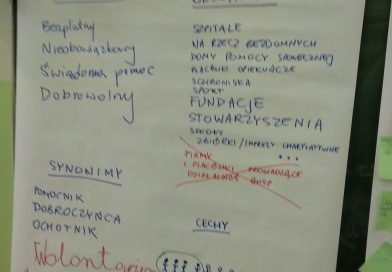 Bezpłatny
Nieobowiązkowy
Świadoma pomoc
Dobrowolny
SZPITALE
NA RZECZ BEZDOMNYCH
DOMY POMOCY SPOŁECZNEJ
PLACÓWKI OPIEKUŃCZE
SCHRONISKA
SPORT
FUNDACJE
STOWARZYSZENIA
SZKOŁY
ZBIÓRKI/IMPREZY CHARYTATYWNE
...
FIRMY
I PLACÓWKI PROWADZĄCE
DZIAŁALNOŚĆ GOSP
SYNONIMY
POMOCNIK
DOBROCZYŃCA
OCHOTNIK
CECHY